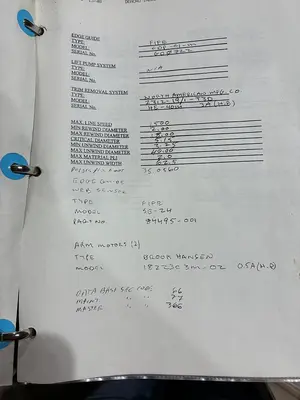 EDGE GUIDE
TYPE: FIFE
MODEL:
SERIAL No.
LIFT PUMP SYSTEM
TYPE: N/A
MODEL:
SERIAL No.
TRIM REMOVAL SYSTEM
TYPE: NORTH AMERICAN MFG. CO
MODEL:
SERIAL No.
MAX. LINE SPEED 1500
MIN REWIND DIAMETER 6.00
MAX REWIND DIAMETER 18.00
CRITICAL DIAMETER
MIN UNWIND DIAMETER 3.25
MAX UNWIND DIAMETER 60.00
MAX MATERIAL PLI 2.0
MAX UNWIND WIDTH 62.5
35.0560
EDGE GUIDE
WEB SENSOR
TYPE FIFE
MODEL SE-24
PART NO. 84495-001
ARM MOTORS (2)
TYPE BROOK HANSEN
MODEL 0.5A (H.B)
DATA BASE SPE CODE 66
" " 77
MASTER 366